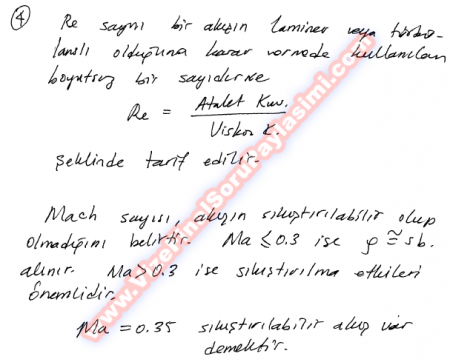 ④ Re sayısı bir akışın laminer veya türbü-
lanslı olduğuna karar vermede kullanılan
boyutsuz bir sayıdır ve
Re = Atalet Kuv. / Viskoz K.
şeklinde tarif edilir.
Mach sayısı, akışın sıkıştırılabilir olup
olmadığını belirtir. Ma ≤ 0.3 ise ρ ≅ sb.
alınır. Ma > 0.3 ise sıkıştırılma etkileri
önemlidir.
Ma = 0.35 sıkıştırılabilir akış var
demektir.
www.VizeFinalSoruPaylasimi.com